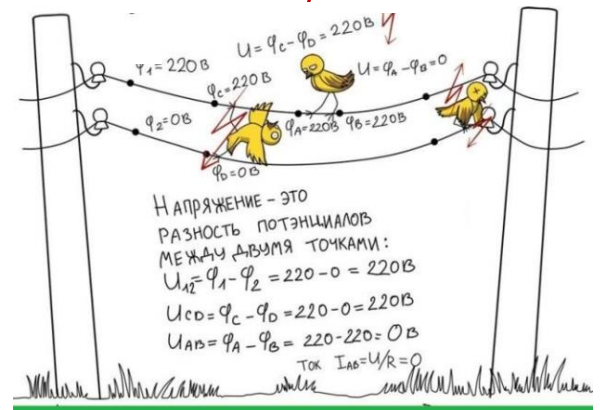 U = φC – φD = 220В
φ1 = 220В
φC = 220В
U = φA – φB = 0
φ2 = 0В
φA = 220В φB = 220В
φD = 0В
НАПРЯЖЕНИЕ – ЭТО
РАЗНОСТЬ ПОТЭНЦИАЛОВ
МЕЖДУ ДВУМЯ ТОЧКАМИ:
U12 = φ1 – φ2 = 220 – 0 = 220В
UCD = φC – φD = 220 – 0 = 220В
UAB = φA – φB = 220 – 220 = 0В
ТОК IAB = U/R = 0